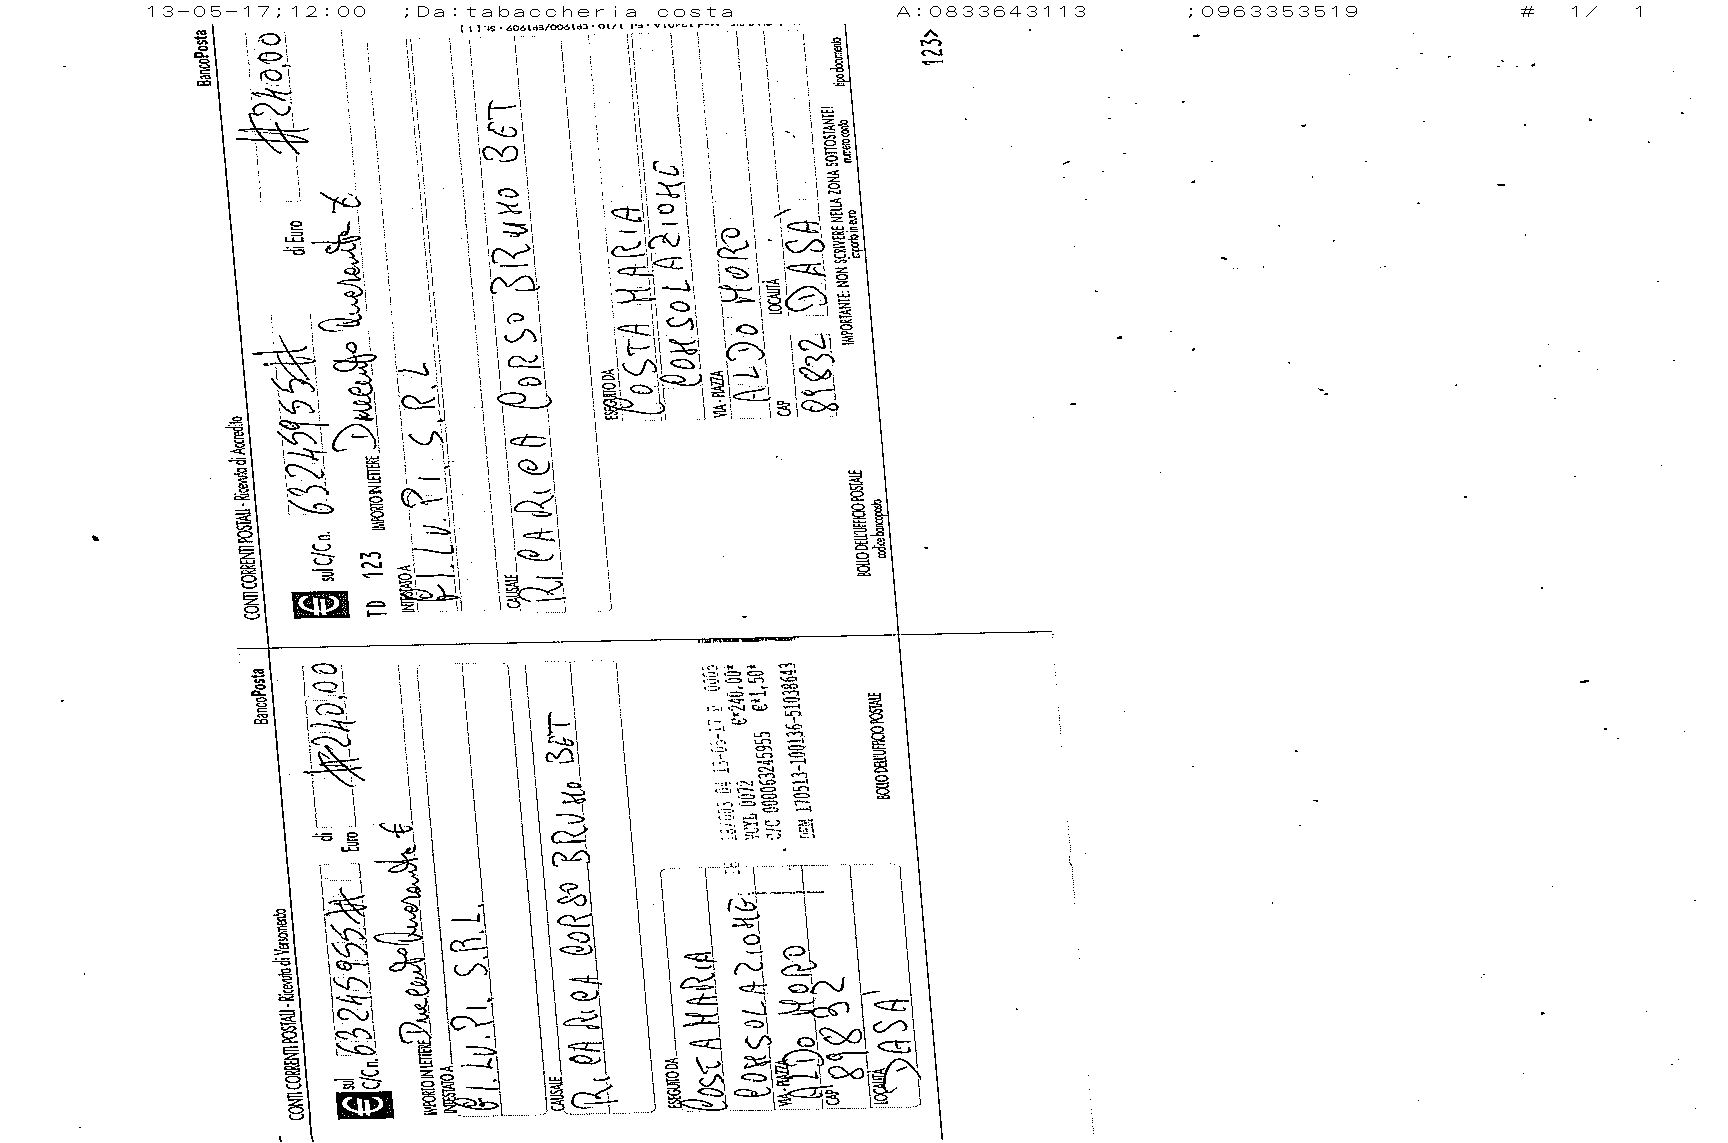 13-05-17;12:00 ;Da:tabaccheria costa A:0833643113 ;0963353519 # 1/ 1
CONTI CORRENTI POSTALI - Ricevuta di Versamento BancoPosta
€ sul C/C n. 63245955# di Euro #240,00
IMPORTO IN LETTERE Duecento Quaranta €
INTESTATO A
GI.LU.PI. S.R.L.
CAUSALE
RICARICA CORSO BRUNO BET
ESEGUITO DA
COSTA MARIA
CONSOLAZIONE
VIA - PIAZZA
ALDO MORO
CAP
89832
LOCALITÀ
DASA'
VCYL 0072 €*240,00*
C/C 000063245955 €*1,50*
170513-100136-51038643
BOLLO DELL'UFFICIO POSTALE
CONTI CORRENTI POSTALI - Ricevuta di Accredito BancoPosta
€ sul C/C n. 63245955# di Euro #240,00
TD 123 IMPORTO IN LETTERE Duecento Quaranta €
INTESTATO A
GI.LU.PI S.R.L
CAUSALE
RICARICA CORSO BRUNO BET
ESEGUITO DA
COSTA MARIA
CONSOLAZIONE
VIA - PIAZZA
ALDO MORO
CAP LOCALITÀ
89832 DASA'
IMPORTANTE: NON SCRIVERE NELLA ZONA SOTTOSTANTE!
BOLLO DELL'UFFICIO POSTALE
codice bancoposta importo in euro numero conto tipo documento
123>